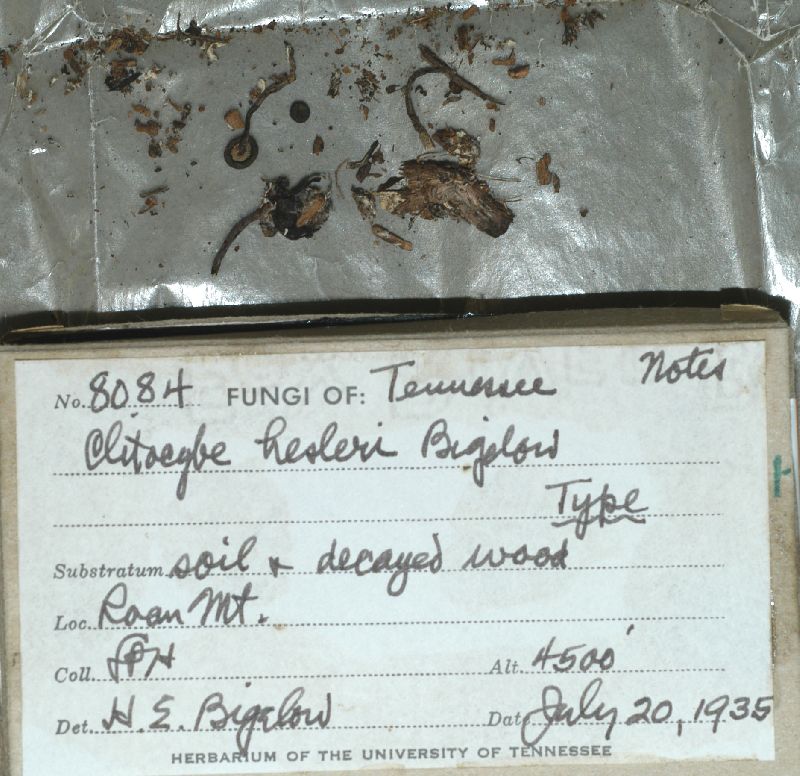 No. 8084 FUNGI OF: Tennessee Notes
Clitocybe hesleri Bigelow
Type
Substratum soil & decayed wood
Loc. Roan Mt.
Coll. Alt. 4500'
Det. H. E. Bigelow Date July 20, 1935
HERBARIUM OF THE UNIVERSITY OF TENNESSEE